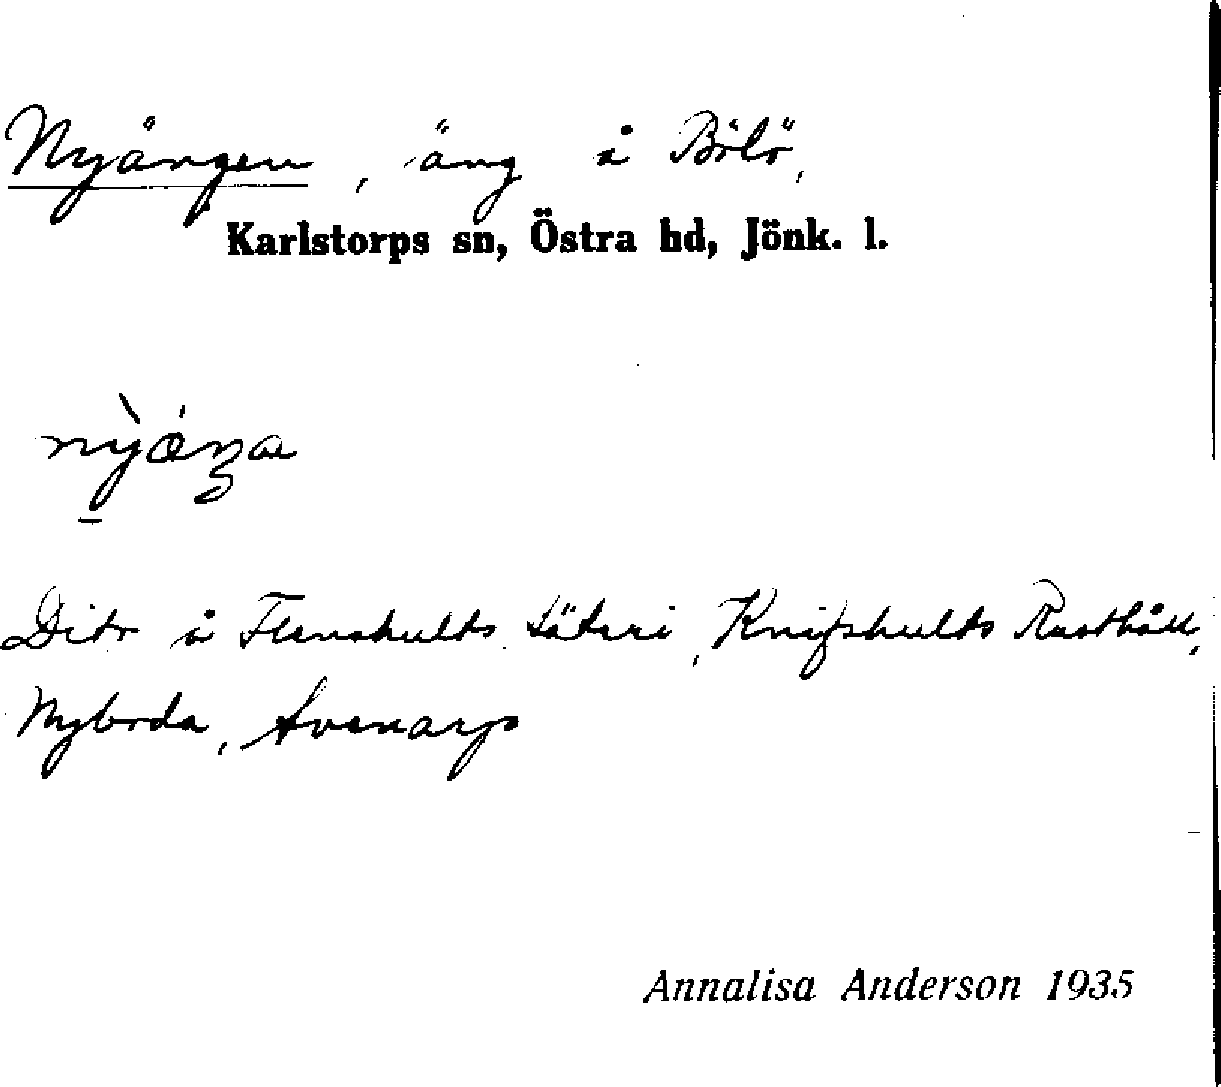 Nyängen, äng å Bölö,
Karlstorps sn, Östra hd, Jönk. l.
nỳæ̀ŋa
Dito å Flenshults Säteri, Knifshults Rusthåll,
Nyboda, Svenarp
Annalisa Anderson 1935